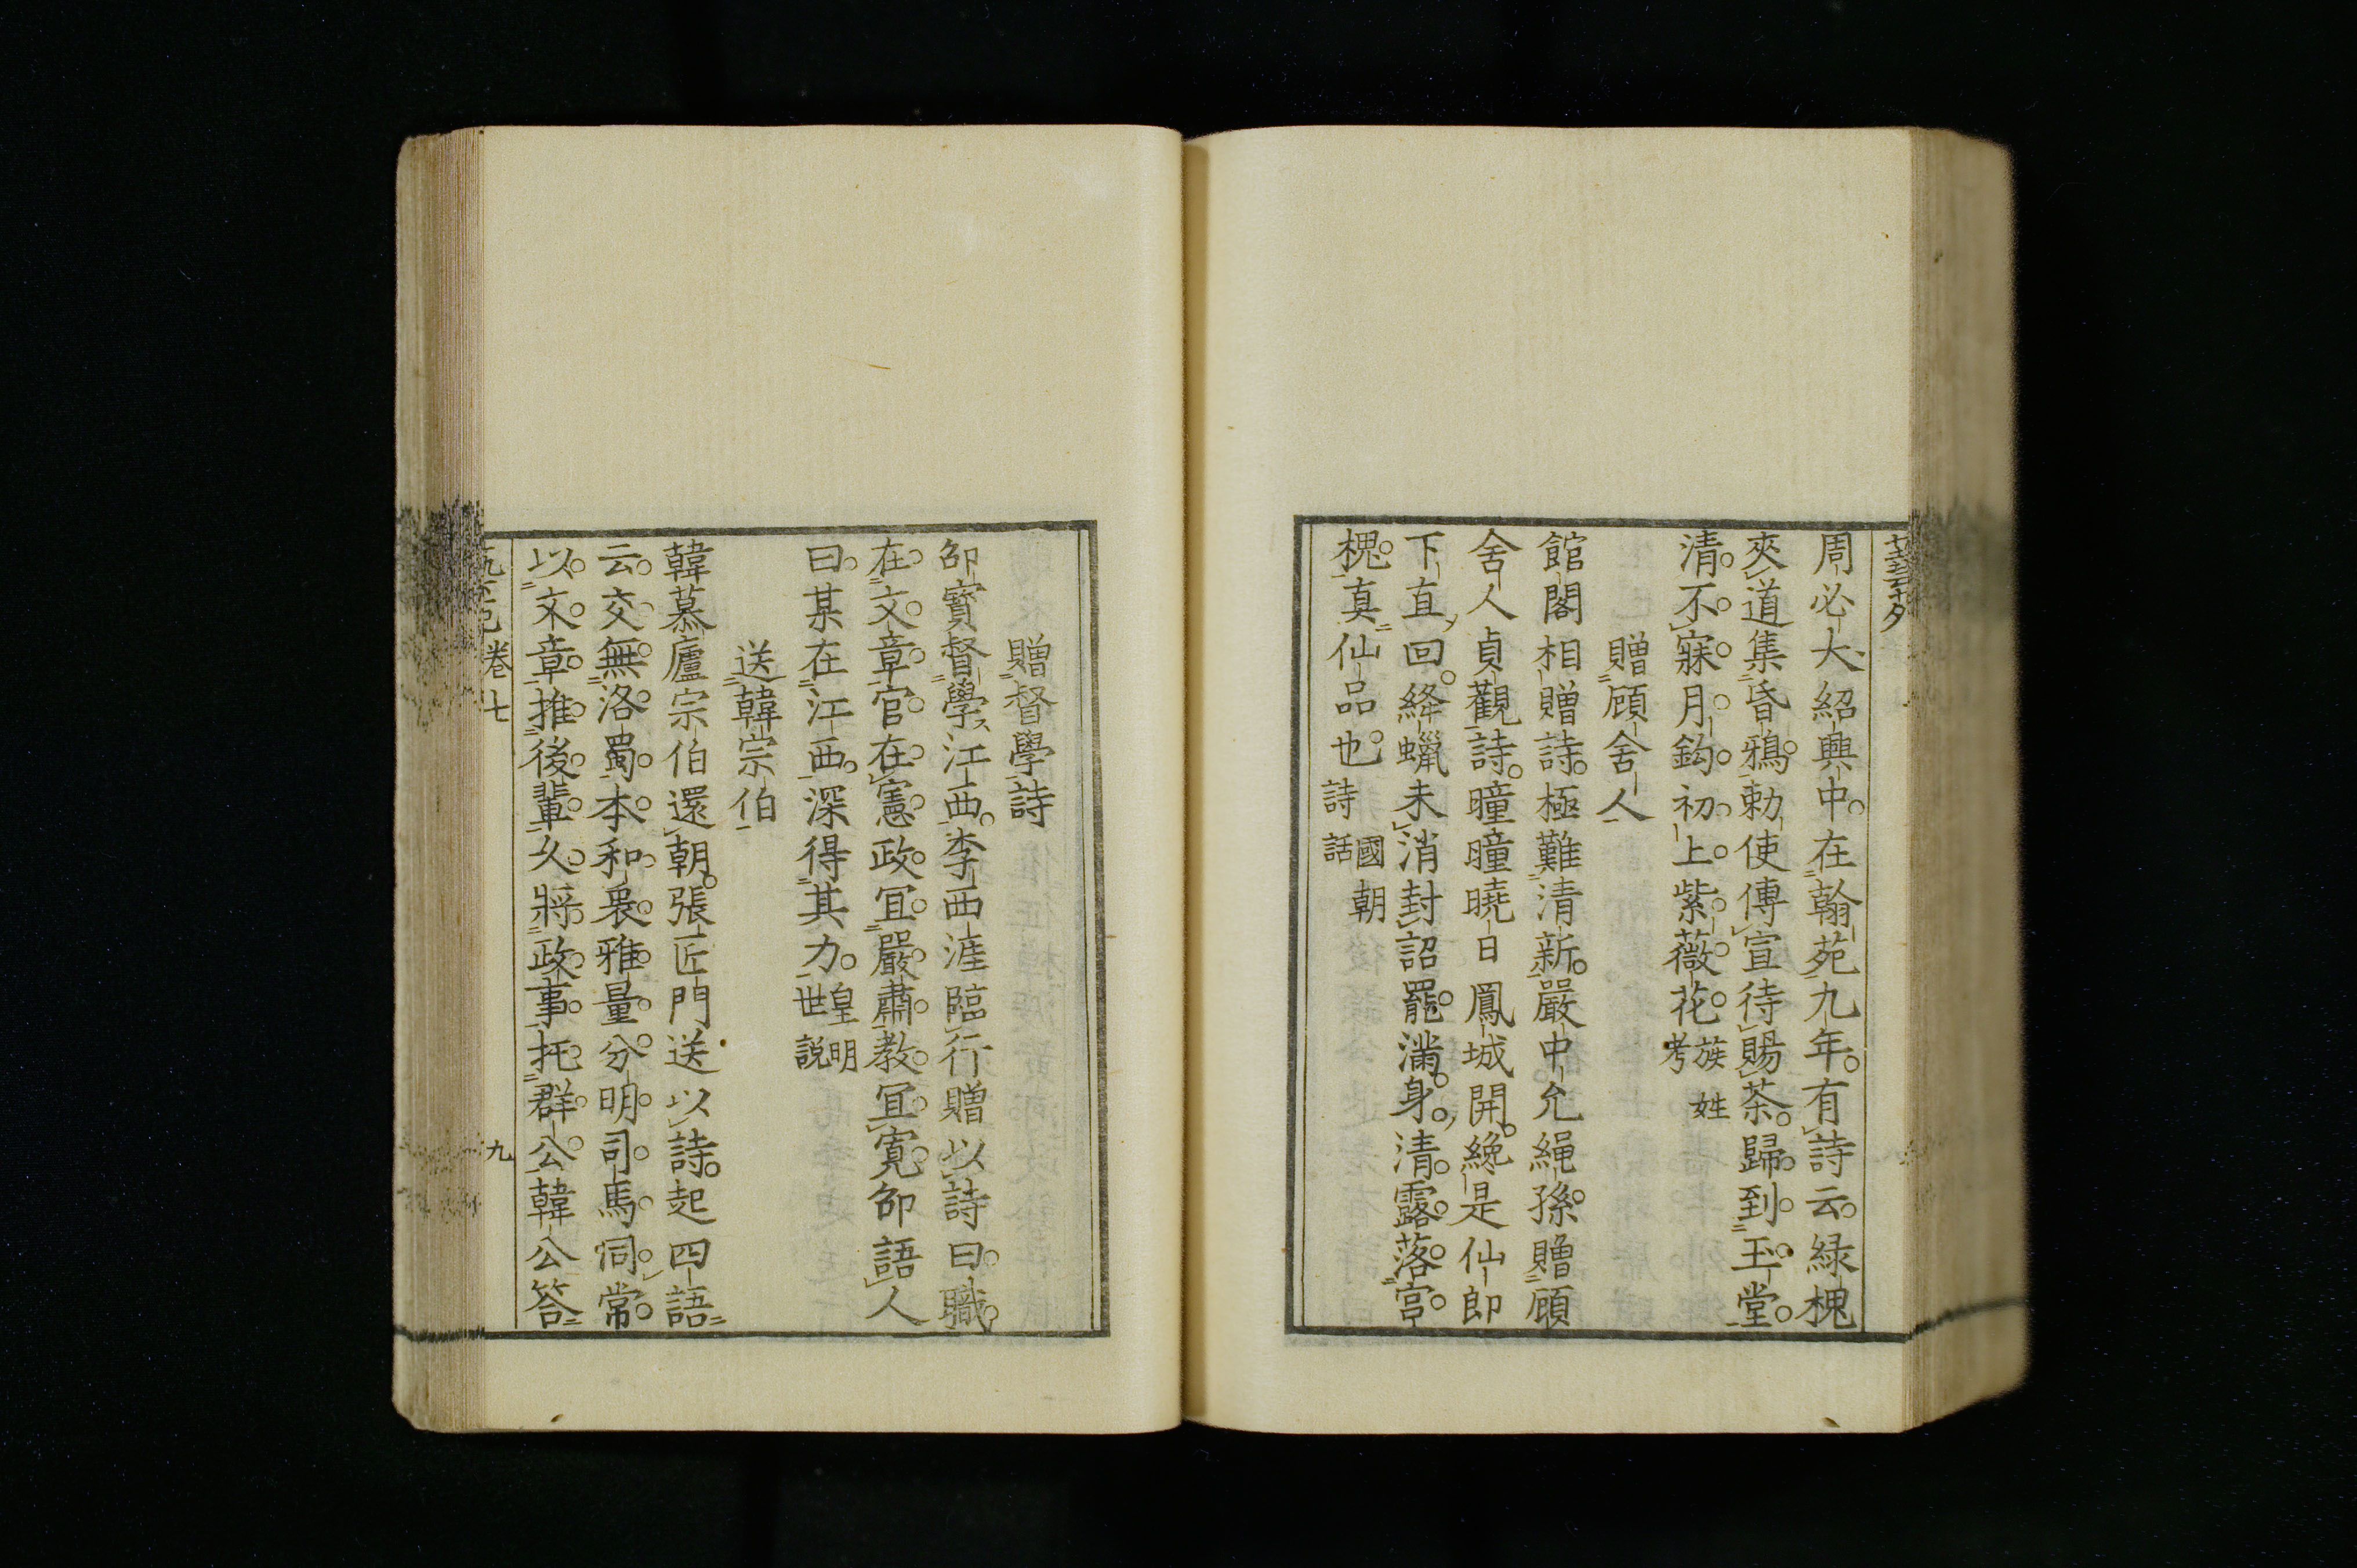 周必大紹興中在翰苑九年有詩云緑槐
夾道集昏鴉勅使傳宣待賜茶歸到玉堂
清不寐月鈎初上紫薇花族姓考
贈顧舍人
館閣相贈詩極難清新嚴中允繩孫贈顧
舍人貞觀詩曈曈曉日鳳城開纔是仙郎
下直回絳蠟未消封詔罷滿身清露落宮
槐真仙品也國朝詩話
贈督學詩
邵寳督學江西李西涯臨行贈以詩曰職
在文章官在憲政冝嚴肅教冝寛邵語人
曰某在江西深得其力皇明世説
送韓宗伯
韓慕廬宗伯還朝張匠門送以詩起四語
云交無洛蜀本和衷雅量分明司馬同常
以文章推後輩久將政事托群公韓公答
卷七
九